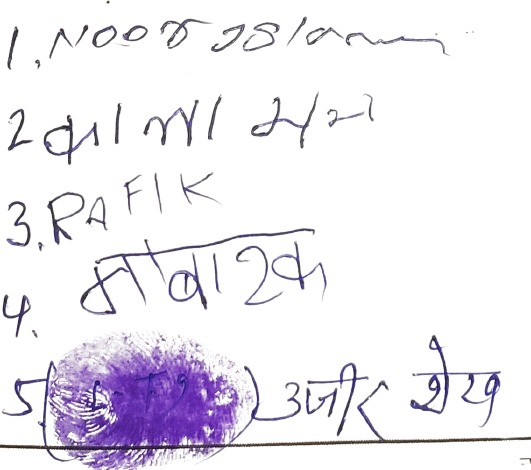 1. Noor Islam
2
3. RAFIK
4. मोबारक
5 उजीर शेख